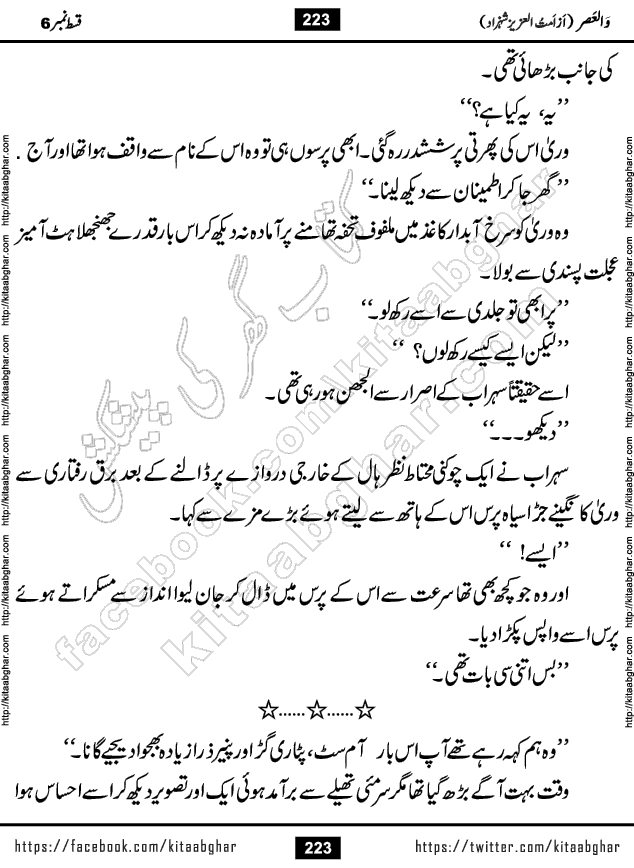 والعصر (از اَمتُ العزیز شہزاد)
223
قسط نمبر 6
کی جانب بڑھائی تھی۔
’’یہ، یہ کیا ہے؟‘‘
وریٰ اس کی پھرتی پر ششدر رہ گئی۔ ابھی پرسوں ہی تو وہ اس کے نام سے واقف ہوا تھا اور آج .
’’گھر جا کر اطمینان سے دیکھ لینا۔‘‘
وہ وریٰ کو سرخ آبدار کاغذ میں ملفوف تحفہ تھامنے پر آمادہ نہ دیکھ کر اس بار قدرے جھنجھلاہٹ آمیز
عجلت پسندی سے بولا۔
’’پر ابھی تو جلدی سے اسے رکھ لو۔‘‘
’’لیکن ایسے کیسے رکھ لوں؟ ‘‘
اسے حقیقتاً سہراب کے اصرار سے الجھن ہو رہی تھی۔
’’دیکھو۔۔۔‘‘
سہراب نے ایک چوکنی محتاط نظر ہال کے خارجی دروازے پر ڈالنے کے بعد برق رفتاری سے
وریٰ کا نگینے جڑا سیاہ پرس اس کے ہاتھ سے لیتے ہوئے بڑے مزے سے کہا۔
’’ایسے! ‘‘
اور وہ جو کچھ بھی تھا سرعت سے اس کے پرس میں ڈال کر جان لیوا انداز سے مسکراتے ہوئے
پرس اسے واپس پکڑا دیا۔
’’بس اتنی سی بات تھی۔‘‘
☆......☆......☆
’’وہ ہم کہہ رہے تھے آپ اس بار آم سٹ، پٹاری گڑ اور پنیر ذرا زیادہ بھجوا دیجیے گا نا۔‘‘
وقت بہت آگے بڑھ گیا تھا مگر سرمئی تھیلے سے برآمد ہوئی ایک اور تصویر دیکھ کر اسے احساس ہوا
https://facebook.com/kitaabghar
223
https://twitter.com/kitaabghar
http://kitaabghar.com http://kitaabghar.com http://kitaabghar.com http://kitaabghar.com http://kitaabghar.com http://kitaabghar.com
http://kitaabghar.com http://kitaabghar.com http://kitaabghar.com http://kitaabghar.com http://kitaabghar.com http://kitaabghar.com
کتاب گھر کی پیشکش
facebook.com/kitaabghar
kitaabghar.com